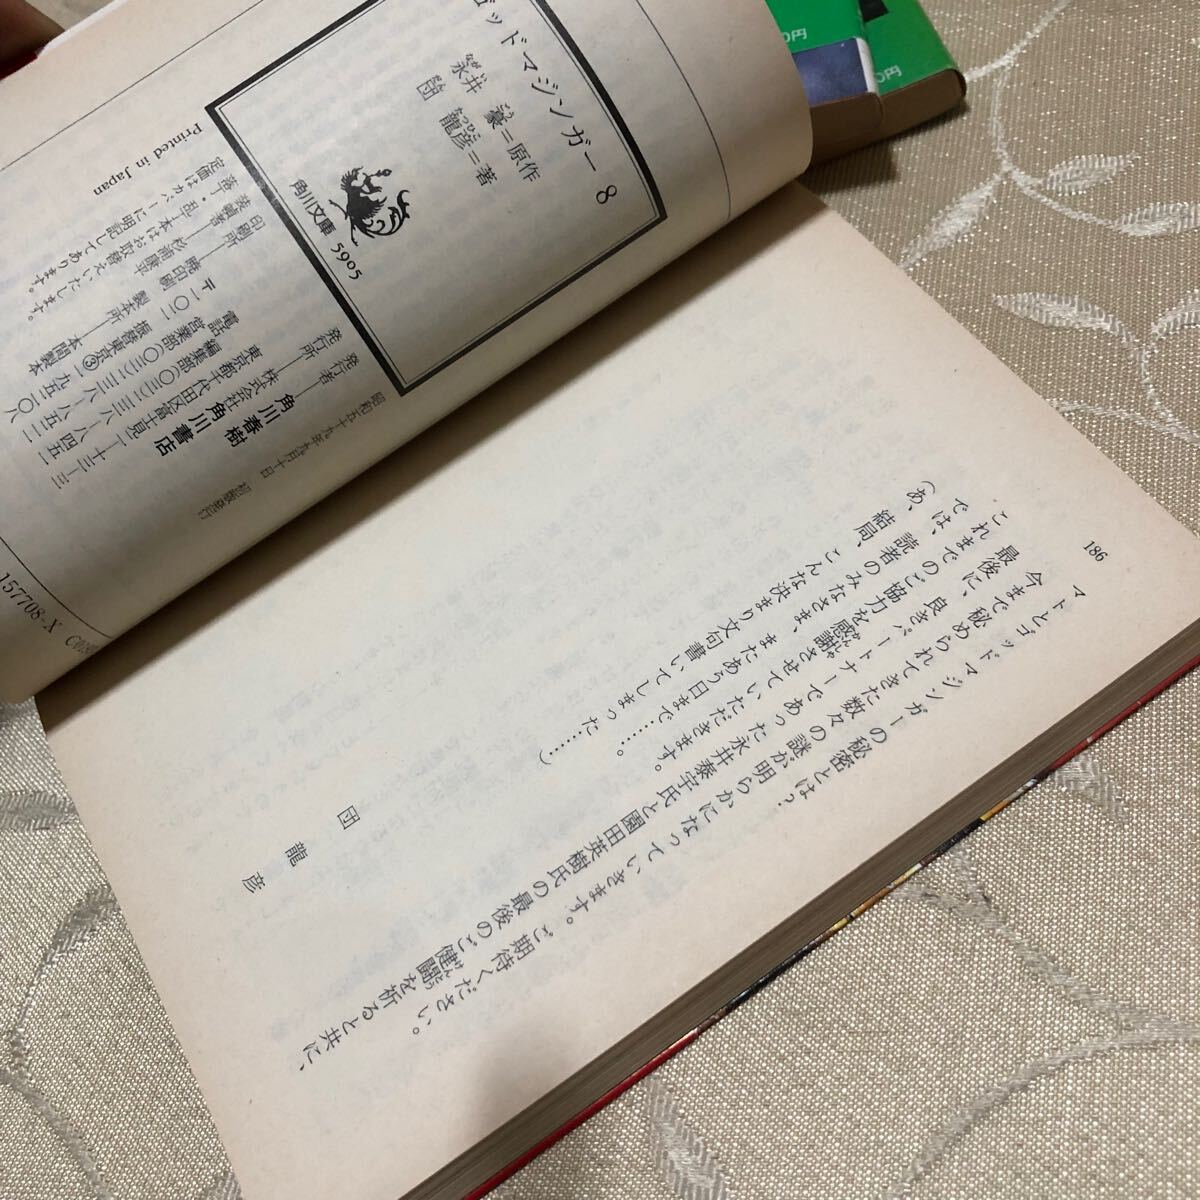 186
マトとゴッドマジンガーの秘密とは?
今まで秘められてきた数々の謎が明らかになっていきます。ご期待ください。
最後に、良きパートナーであった永井泰宇氏と園田英樹氏の最後のご健闘を祈ると共に、
これまでのご協力を感謝させていただきます。
では、読者のみなさま、またあう日まで……。
(あ、結局、こんな決まり文句書いてしまった……)
団龍彦
ゴッドマジンガー 8
永井 豪=原作
団 龍彦=著
角川文庫 5905
昭和五十九年九月十日 初版発行
発行者―角川春樹
発行所―株式会社角川書店
東京都千代田区富士見二―十三―三
電話 編集部(〇三)二三八―八四五一
営業部(〇三)二三八―八五二一
〒一〇二 振替東京③一九五二〇八
印刷所―暁印刷 製本所―本間製本
装幀者―杉浦康平
落丁・乱丁本はお取替えいたします。
定価はカバーに明記してあります。
Printed in Japan
157708-X
0円
0円